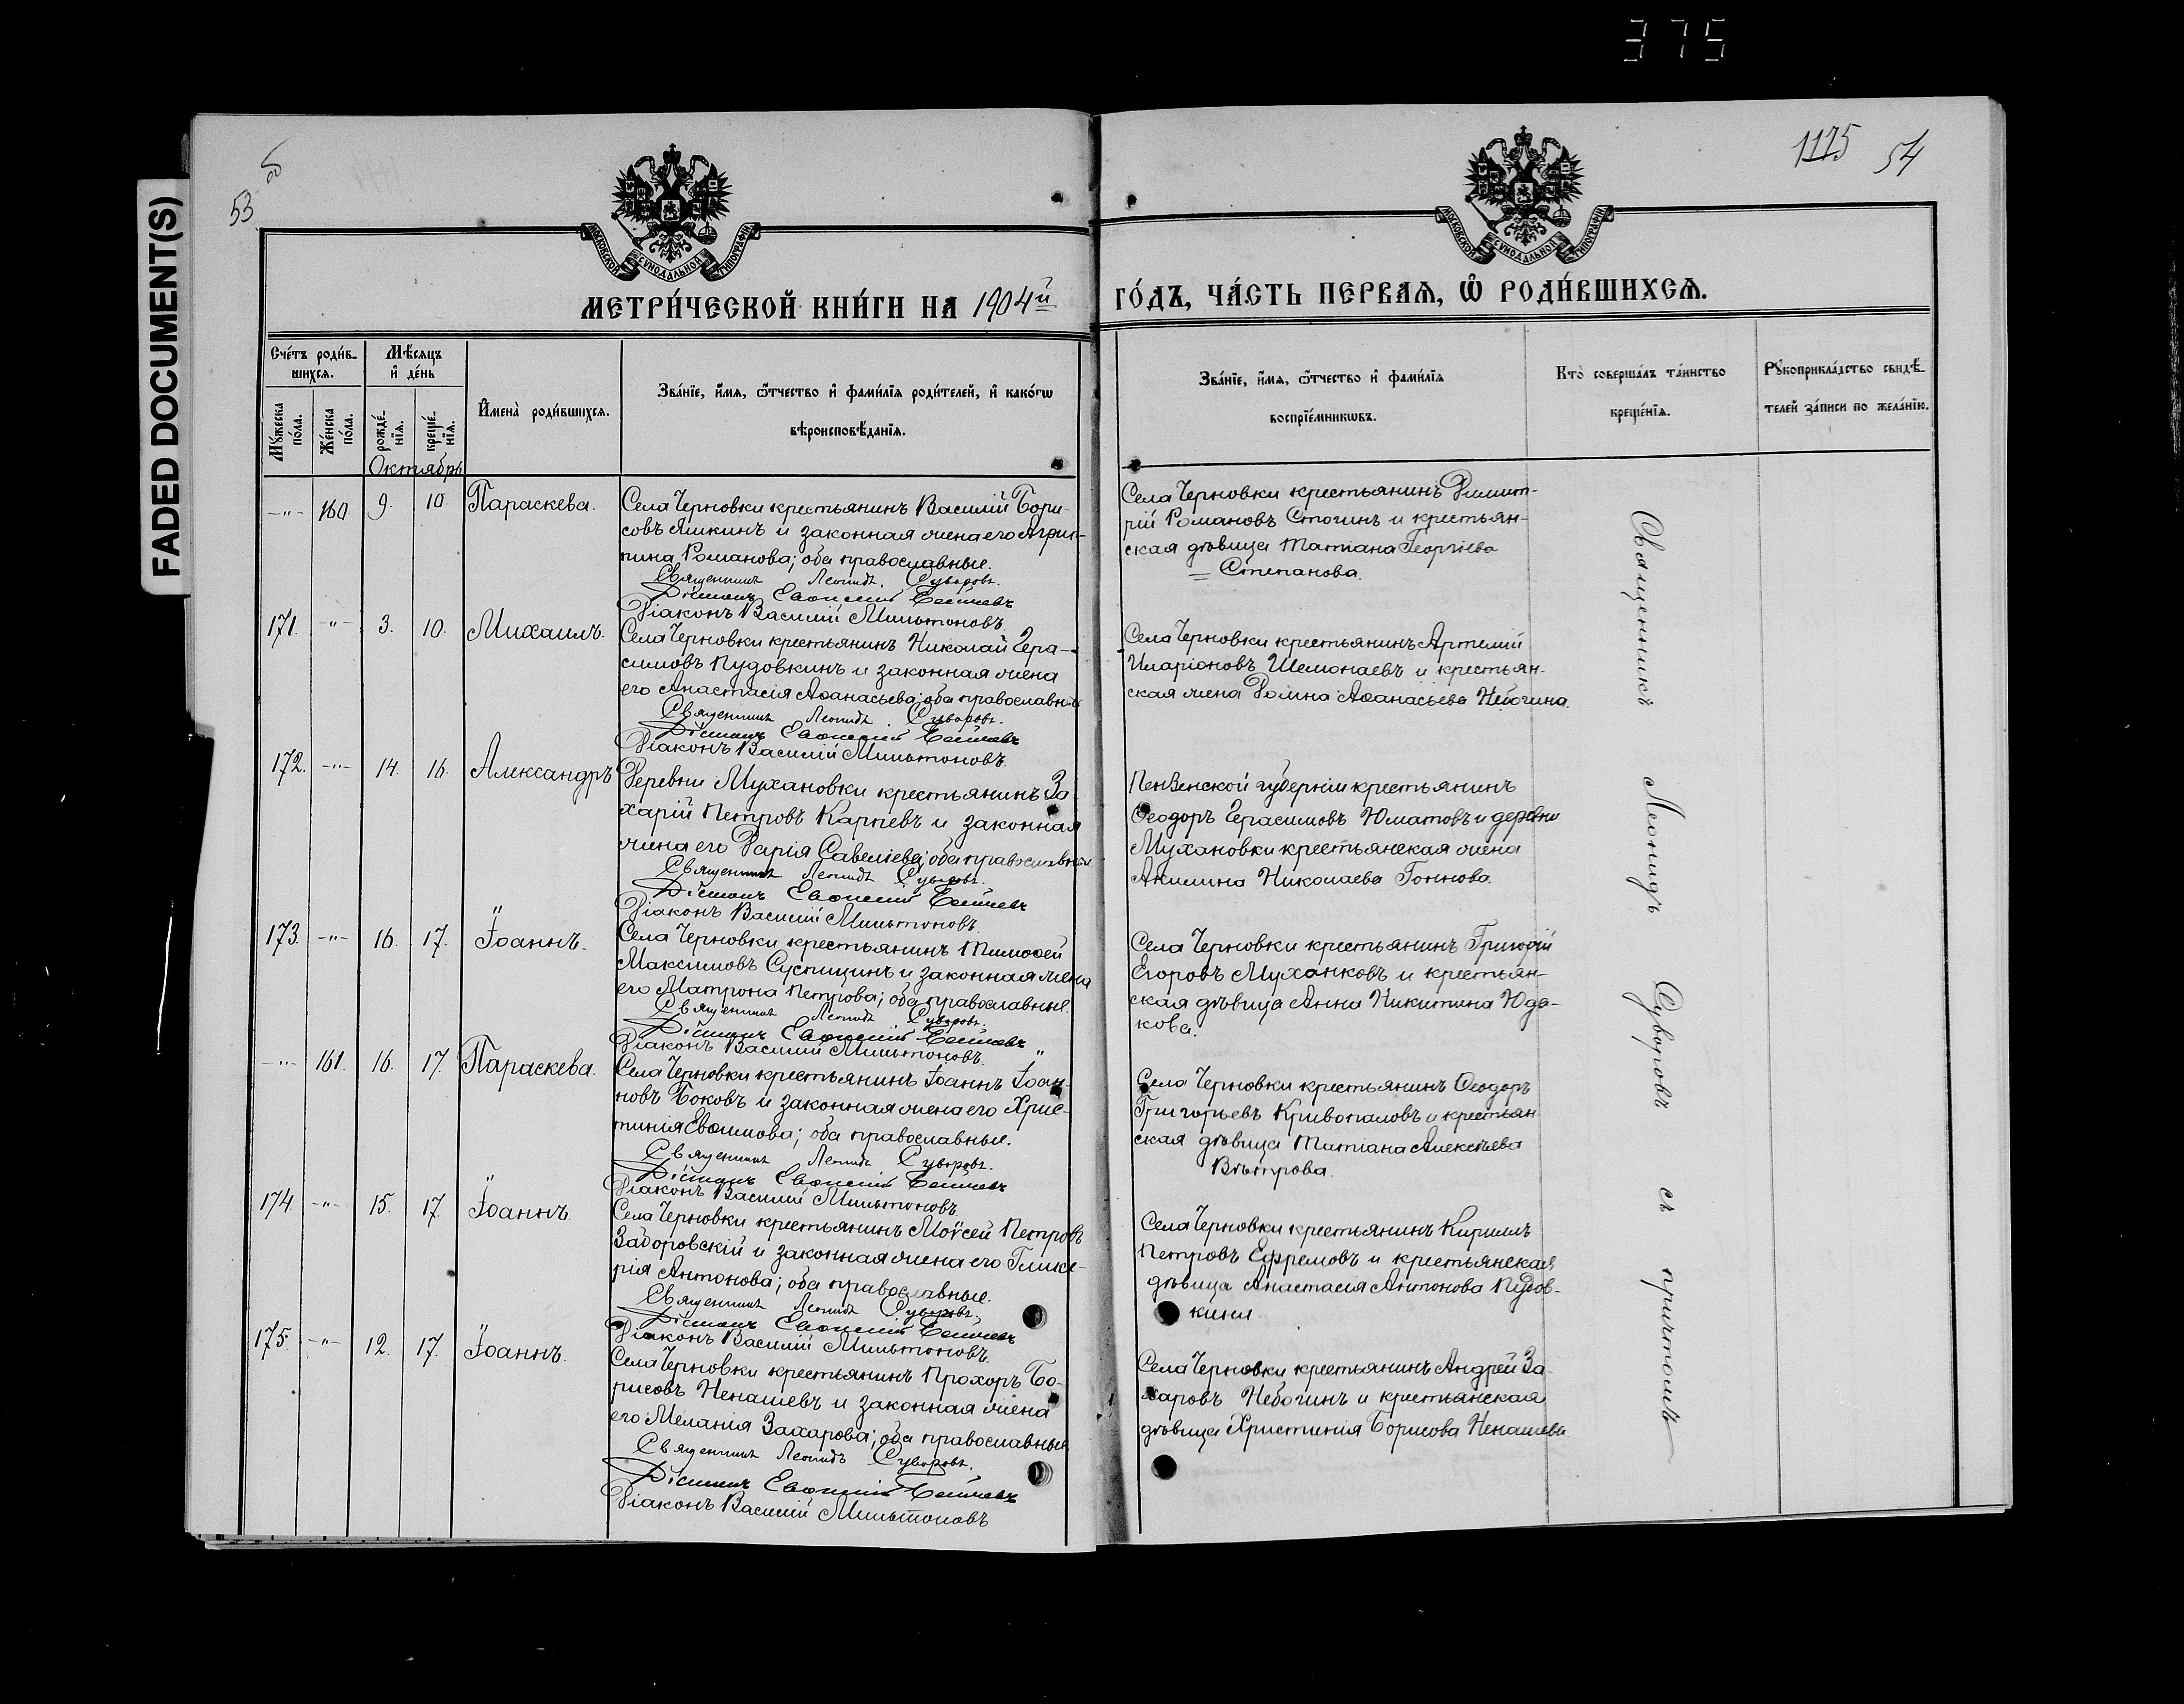 375
FADED DOCUMENT(S)
53 об
1175 54
МОСКОВСКОЙ СѴНОДАЛЬНОЙ ТИПОГРАФІИ
МОСКОВСКОЙ СѴНОДАЛЬНОЙ ТИПОГРАФІИ
МЕТРИ́ЧЕСКОЙ КНИ́ГИ НА 1904й
ГО́ДЪ, ЧА́СТЬ ПЕРВАѦ, Ѡ҆ РОДИ́ВШИХСѦ.
Сче́тъ роди́в-
шихсѧ.
Мѣ́сѧцъ
и҆ де́нь
Мꙋ́жеска
по́ла.
Же́нска
по́ла.
рожде́-
нїѧ.
креще́-
нїѧ.
И҆мена̀ роди́вшихсѧ.
Зва́нїе, и҆́мѧ, ѻ҆́тчество и҆ фами́лїѧ роди́телей, и҆ како́гѡ
вѣроисповѣ́данїѧ.
Зва́нїе, и҆́мѧ, ѻ҆́тчество и҆ фами́лїѧ
воспрїе́мникѡвъ.
Кто̀ соверша́лъ та́инство
креще́нїѧ.
Рꙋкоприкла́дство свидѣ́-
телей за́писи по жела́нїю.
Октябрь
-"- 160 9. 10. Параскева.
Села Черновки крестьянинъ Василій Бори-
совъ Яшкинъ и законная жена его Агрип-
пина Романова; оба православные.
Священникъ Леонидъ Суворовъ.
Діаконъ Евѳимій
Діаконъ Василій Мильтоновъ.
Села Черновки крестьянинъ Димит-
рій Романовъ Стогинъ и крестьян-
ская дѣвица Татіана Георгіева
= Степанова.
171. -"- 3. 10. Михаилъ.
Села Черновки крестьянинъ Николай Гера-
симовъ Пудовкинъ и законная жена
его Анастасія Аѳанасьева; оба православные
Священникъ Леонидъ Суворовъ.
Діаконъ Евѳимій
Діаконъ Василій Мильтоновъ.
Села Черновки крестьянинъ Артемій
Иларіоновъ Шемонаевъ и крестьян-
ская жена Домна Аѳанасьева Небогина.
172. -"- 14. 16. Александръ
Деревни Мухановки крестьянинъ За-
харій Петровъ Карпевъ и законная
жена его Дарія Савеліева; оба православные
Священникъ Леонидъ Суворовъ.
Діаконъ Евѳимій
Діаконъ Василій Мильтоновъ.
Пензенской губерніи крестьянинъ
Ѳеодоръ Герасимовъ Юматовъ и деревни
Мухановки крестьянская жена
Акилина Николаева Гоннова.
173. -"- 16. 17. Іоаннъ.
Села Черновки крестьянинъ Тимоѳей
Максимовъ Суспицинъ и законная жена
его Матрона Петрова; оба православные.
Священникъ Леонидъ Суворовъ.
Діаконъ Евѳимій
Діаконъ Василій Мильтоновъ.
Села Черновки крестьянинъ Григорій
Егоровъ Муханковъ и крестьян-
ская дѣвица Анна Никитина Юда-
кова.
-"- 161. 16. 17. Параскева.
Села Черновки крестьянинъ Іоаннъ Іоан-
новъ Боковъ и законная жена его Хрис-
тинія Евѳимова; оба православные.
Священникъ Леонидъ Суворовъ.
Діаконъ Евѳимій
Діаконъ Василій Мильтоновъ
Села Черновки крестьянинъ Ѳеодоръ
Григорьевъ Кривопаловъ и крестьян-
ская дѣвица Татіана Алексѣева
Вѣтрова.
174 -"- 15. 17. Іоаннъ.
Села Черновки крестьянинъ Моѵсей Петровъ
Задоровскій и законная жена его Глике-
рія Антонова; оба православные.
Священникъ Леонидъ Суворовъ.
Діаконъ Евѳимій
Діаконъ Василій Мильтоновъ.
Села Черновки крестьянинъ Кириллъ
Петровъ Ефремовъ и крестьянская
дѣвица Анастасія Антонова Пудов-
кина.
175. -"- 12. 17. Іоаннъ.
Села Черновки крестьянинъ Прохоръ Бо-
рисовъ Ненашевъ и законная жена
его Меланія Захарова; оба православные
Священникъ Леонидъ Суворовъ.
Діаконъ Евѳимій
Діаконъ Василій Мильтоновъ
Села Черновки крестьянинъ Андрей За-
харовъ Небогинъ и крестьянская
дѣвица Христинія Борисова Ненашева
Священникъ Леонидъ Суворовъ съ причтомъ